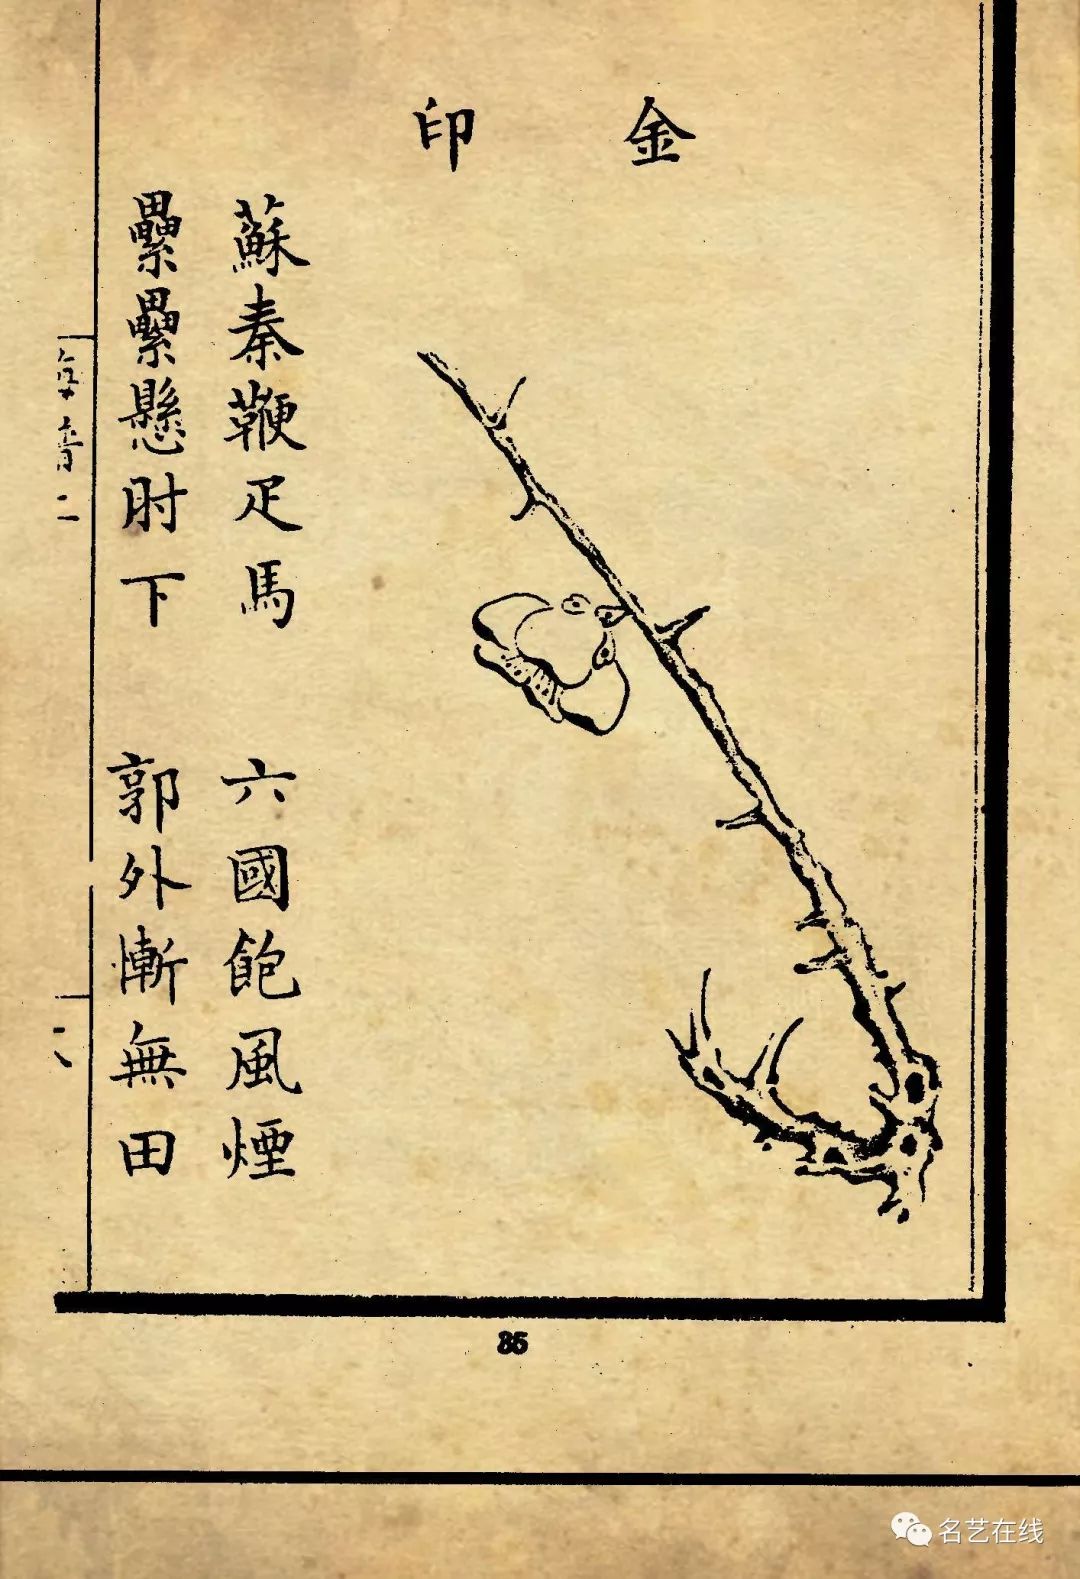 金印
蘇秦鞭疋馬
六國飽風煙
纍纍懸肘下
郭外慚無田
二
85
名艺在线